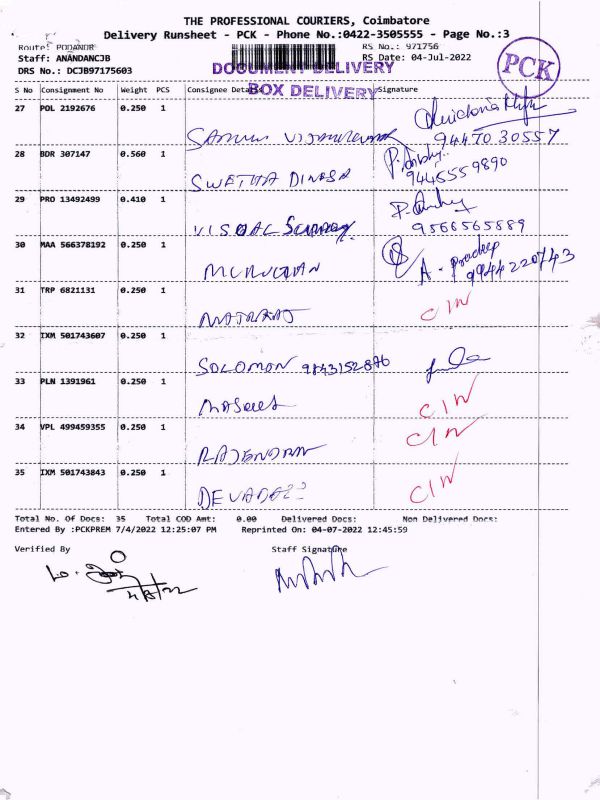 THE PROFESSIONAL COURIERS, Coimbatore
Delivery Runsheet - PCK - Phone No.:0422-3505555 - Page No.:3
Route: PODANUR RS No.: 971756
Staff: ANANDANCJB RS Date: 04-Jul-2022
DRS No.: DCJB97175603
DOCUMENT DELIVERY
BOX DELIVERY
PCK
S No Consignment No Weight PCS Consignee Details Signature
27 POL 2192676 0.250 1
94470 30557
28 BDR 307147 0.560 1
SWETHA 9445559890
29 PRO 13492499 0.410 1
9566565889
30 MAA 566378192 0.250 1
MURUGAN A. Pradeep 9944220743
31 TRP 6821131 0.250 1
C/N
32 IXM 501743607 0.250 1
SOLOMON 9843152876
33 PLN 1391961 0.250 1
C/N
34 VPL 499459355 0.250 1
RAJENDRAN C/N
35 IXM 501743843 0.250 1
C/N
Total No. Of Docs: 35 Total COD Amt: 0.00 Delivered Docs: Non Delivered Docs:
Entered By :PCKPREM 7/4/2022 12:25:07 PM Reprinted On: 04-07-2022 12:45:59
Verified By Staff Signature